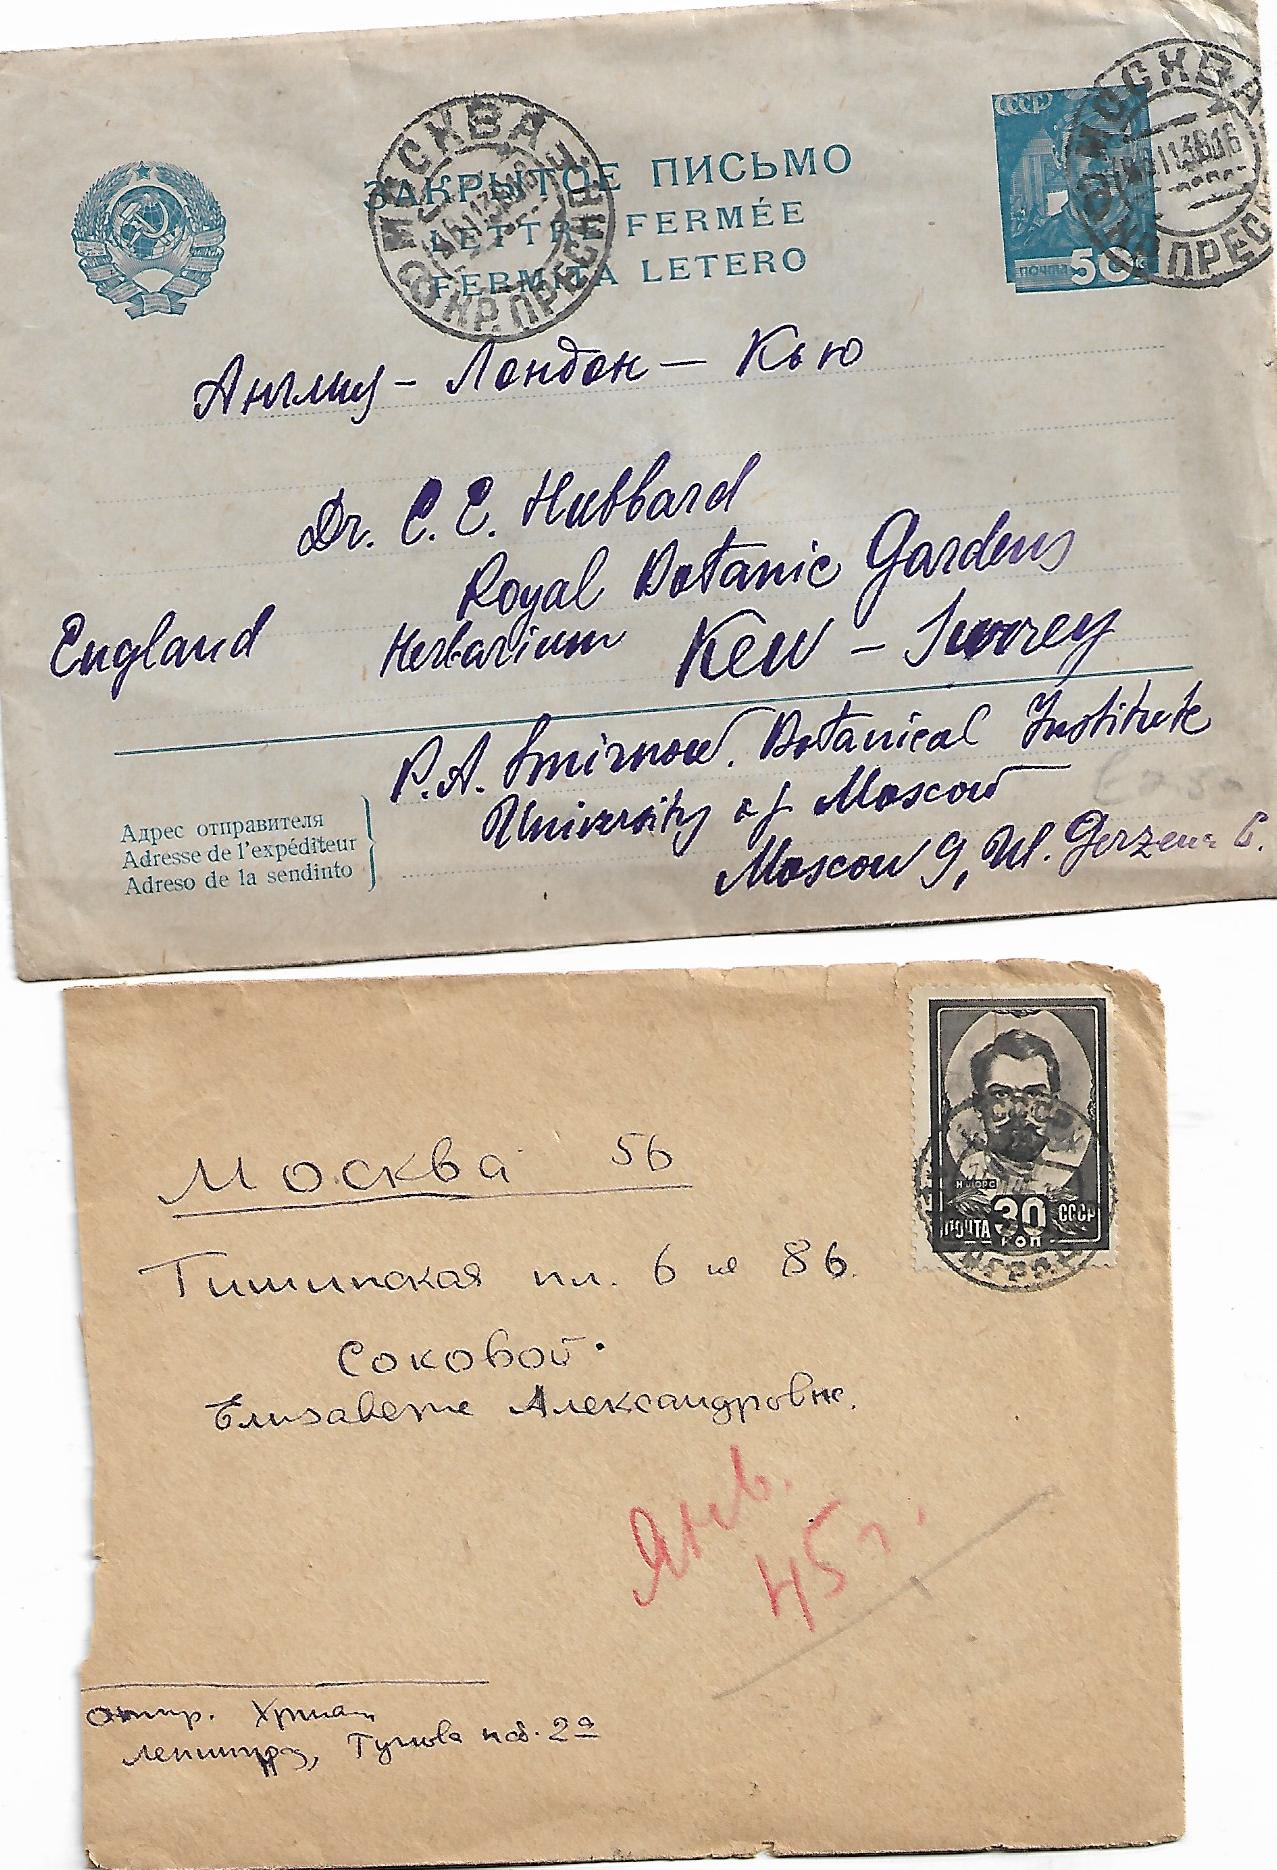 ЗАКРЫТОЕ ПИСЬМО
LETTRE FERMÉE
FERMITA LETERO
СССР
ПОЧТА 50
МОСКВА
КР. ПРЕСН.
МОСКВА
КР. ПРЕС
Англия - Лондон - Кью
Dr. C. E. Hubbard
Royal Botanic Gardens
England Herbarium Kew - Surrey
P. A. Smirnow. Botanical Institute
University of Moscow
Moscow 9, Ul. Gerzena 6.
Адрес отправителя
Adresse de l'expéditeur
Adreso de la sendinto
ПОЧТА 30 СССР
КОП
СССР
Москва 56
Тишинская пл. 6 кв 86.
Соковой
Елизавете Александровне.
Янв.
45 г.
отпр.
Ленинград, наб. 2а